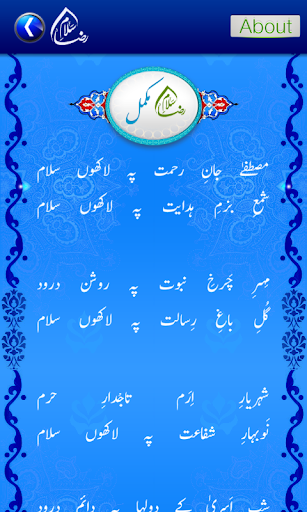 سلام رضا
About
سلام رضا مکمل
مصطفےٰ جانِ رحمت پہ لاکھوں سلام
شمعِ بزمِ ہدایت پہ لاکھوں سلام
مہرِ چَرخِ نبوت پہ روشن درود
گُلِ باغِ رِسالت پہ لاکھوں سلام
شہریارِ اِرَم تاجْدارِ حرم
نَوبہارِ شفاعت پہ لاکھوں سلام
شبِ اَسریٰ کے دولہا پہ دائم درود